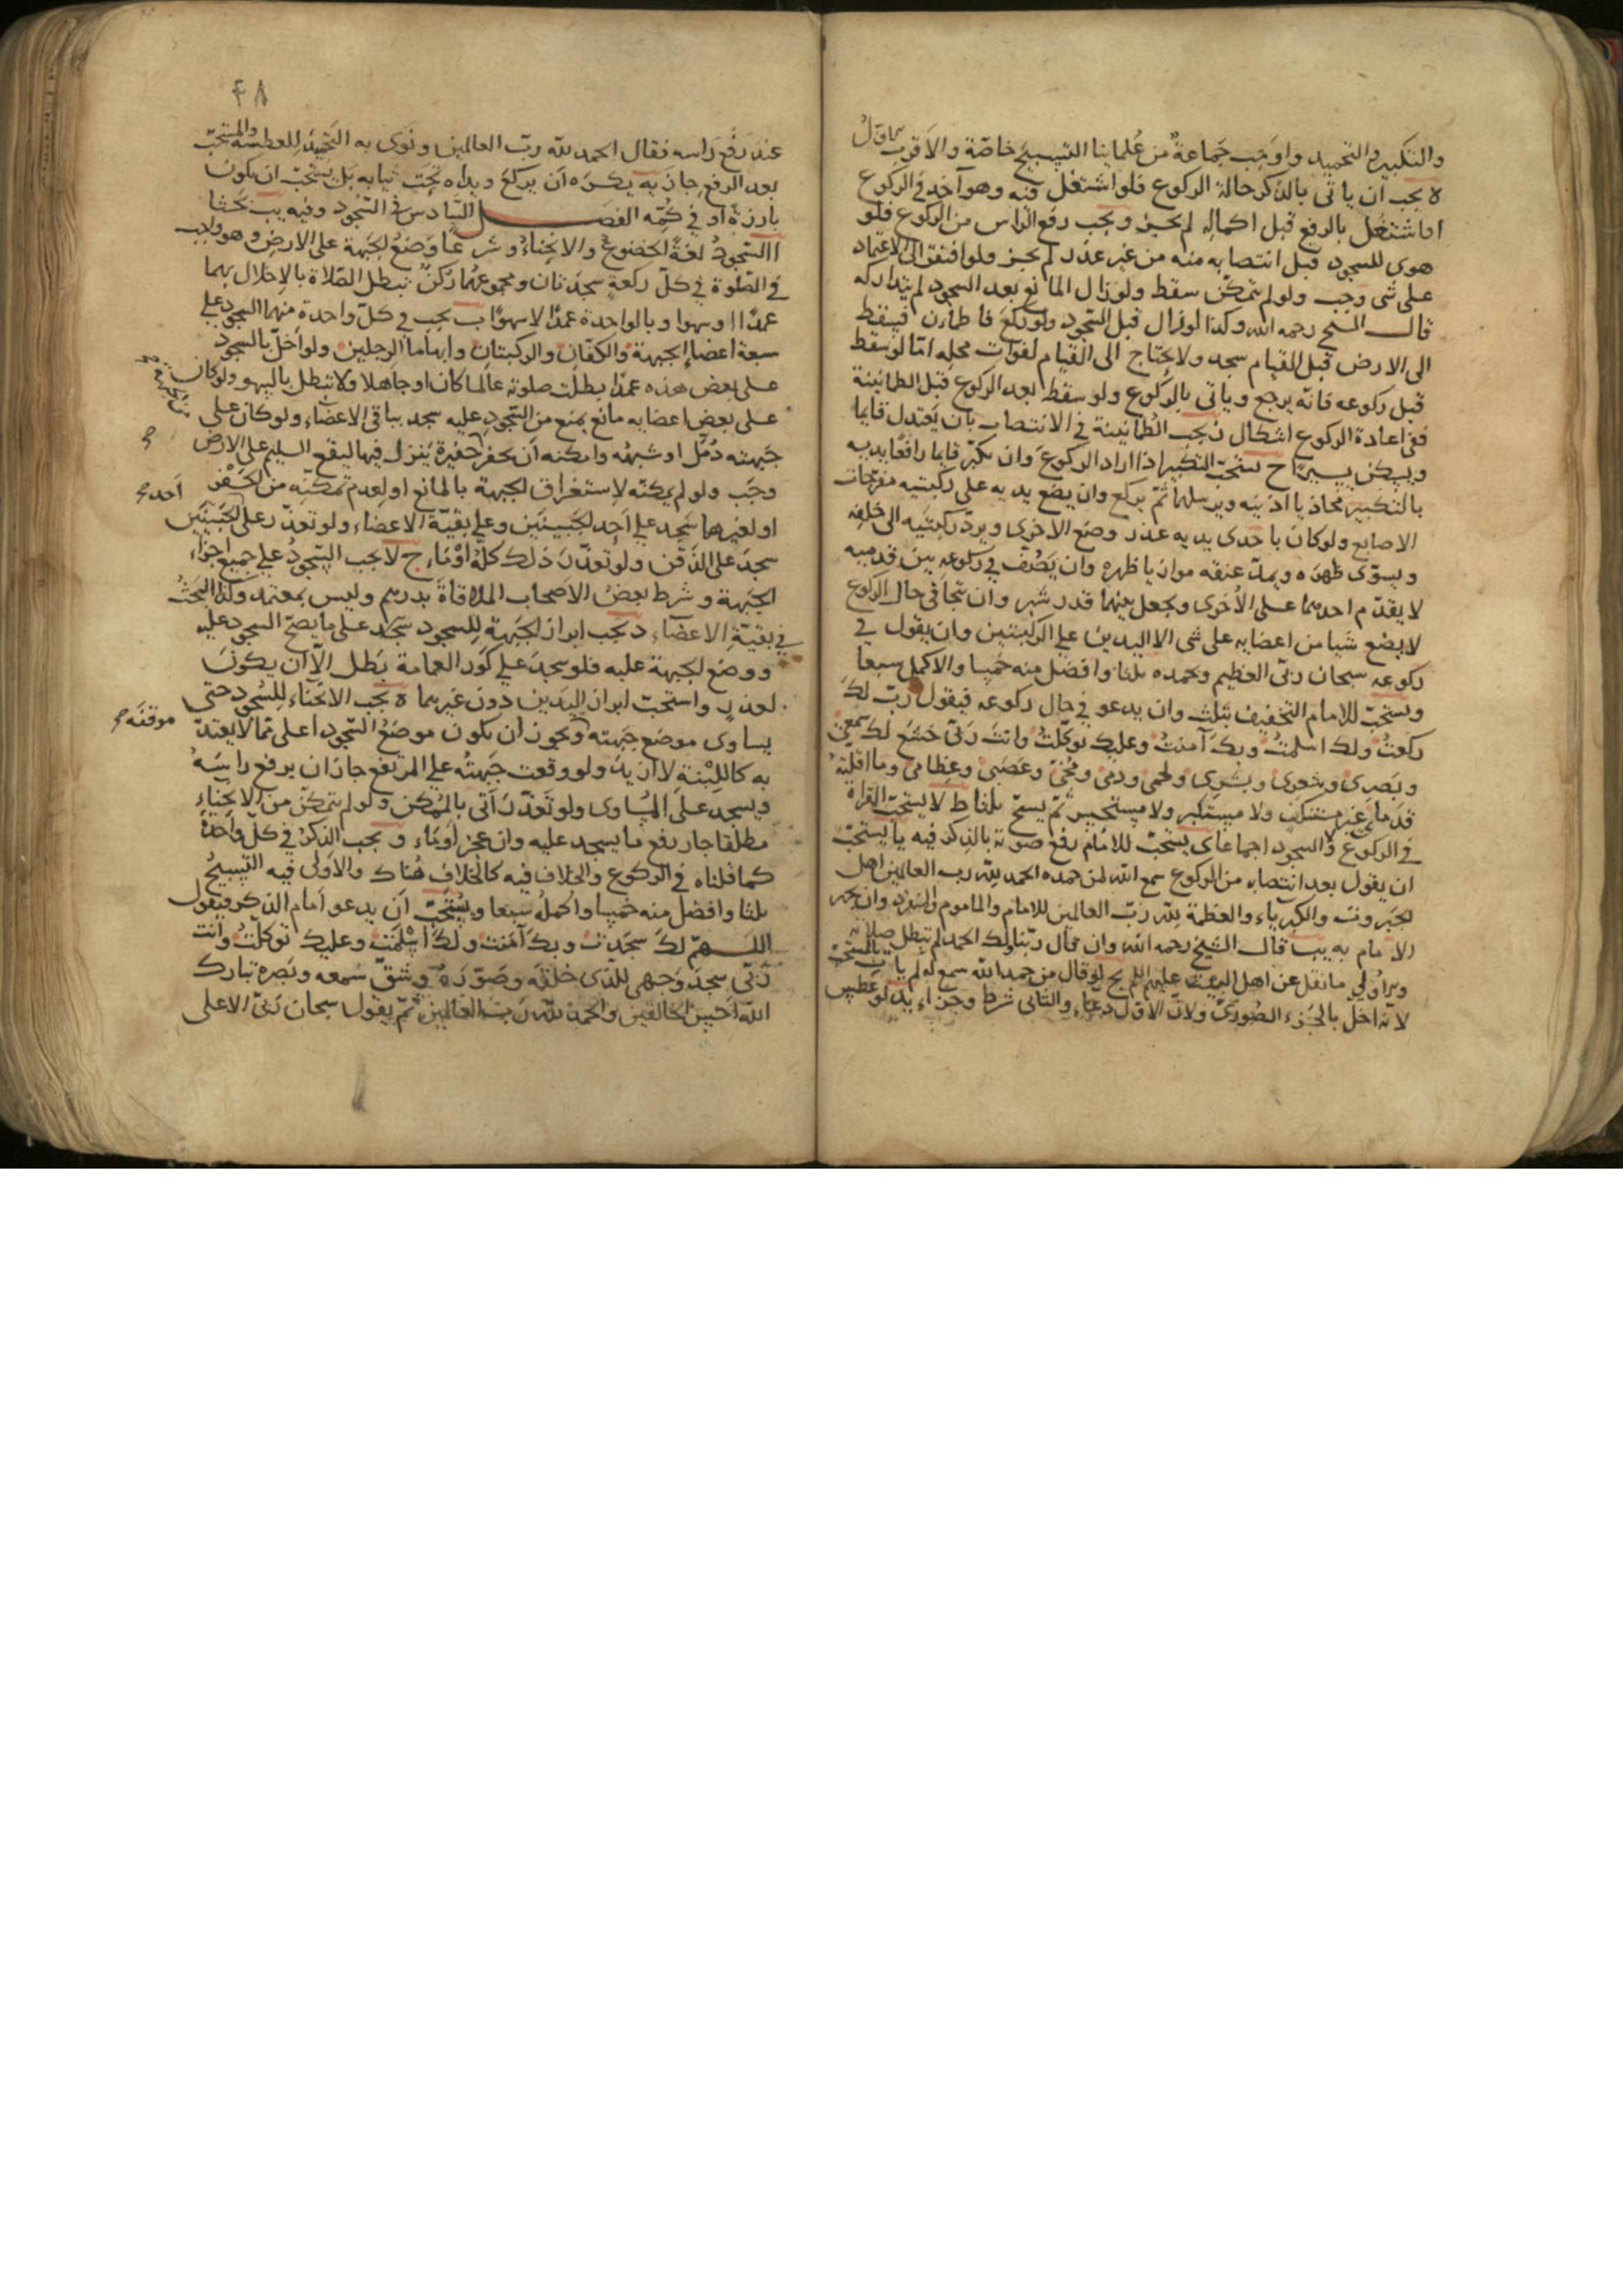 والتكبير والتحميد واوجب جماعة من علمائنا التسبيح خاصة والاقرب الاول
ه يجب ان ياتى بالذكر حالة الركوع فلو اشتغل فيه وهو آخذ فى الركوع
او اشتغل بالرفع قبل اكماله لم يجز و يجب رفع الراس من الركوع فلو
هوى للسجود قبل انتصابه منه من غير عذر لم يجز ولو افتقر الى الاعتماد
على شى وجب ولو لم يتمكن سقط ولو زال المانع بعد السجود لم يتداركه
قال الشيخ رحمه الله وكذا لو زال قبل السجود ولو ركع فاطمأن فسقط
الى الارض قبل القيام سجد ولا يحتاج الى القيام لفوات محله امّا لو سقط
قبل ركوعه فانه يرجع وياتى بالركوع ولو سقط بعد الركوع قبل الطمانينة
ففى اعادة الركوع اشكال ز يجب الطمانينة فى الانتصاب بان يعتدل قايما
ويسكن يسيرا ح يستحب التكبير اذا اراد الركوع وان يكبر قايما رافعا يديه
بالتكبير محاذيا اذنيه ويرسلهما ثم يركع وان يضع يديه على ركبتيه مفرجات
الاصابع ولو كان باحدى يديه عذر وضع الاخرى ويرد ركبتيه الى خلفه
ويسوى ظهره ويمد عنقه موازيا ظهره وان يصف فى ركوعه بين قدميه
لا يقدم احدهما على الاخرى ويجعل بينهما قدر شبر وان يتجافى حال الركوع
لا يضع شيا من اعضايه على شى الا اليدين على الركبتين وان يقول فى
ركوعه سبحان ربى العظيم وبحمده ثلثا وافضل منه خمسا والاكمل سبعا
ويستحب للامام التخفيف بثلث وان يدعو فى حال ركوعه فيقول رب لك
ركعت ولك اسلمت وبك آمنت وعليك توكلت وانت ربى خشع لك سمعى
وبصرى وشعرى وبشرى ولحمى ودمى ومخى وعصبى وعظامى وما اقلته
قدماى غير مستنكف ولا مستكبر ولا مستحسر ثم يسبح ثلثا ط لا يستحب القراة
فى الركوع والسجود اجماعا ى يستحب للامام رفع صوته بالذكر فيه يا يستحب
ان يقول بعد انتصابه من الركوع سمع الله لمن حمده الحمد لله رب العالمين اهل
الجبروت والكبرياء والعظمة لله رب العالمين للامام والماموم والمنفرد وان يجهر
الامام به يب قال الشيخ رحمه الله وان قال ربنا ولك الحمد لم تبطل صلاته
والاولى ما نقل عن اهل البيت عليهم السلم يج لو قال من حمد الله سمع له لم يات بالمستحب
لانه اخل بالجزء الصورى ولان الاول دعاء والثانى شرط وجزاء يد لو عطس
٤٨
عند رفع راسه فقال الحمد لله رب العالمين ونوى به التحميد للعطسة والمستحب
بعد الرفع جاز يه يكره ان يركع ويداه تحت ثيابه بل يستحب ان يكونا
بارزة او فى كمه الفصل السادس فى السجود وفيه يب بحثا
ا السجود لغة الخضوع والانحناء وشرعا وضع الجبهة على الارض وهو واجب
فى الصلوة فى كل ركعة سجدتان ومجموعهما ركن تبطل الصلاة بالاخلال بهما
عمدا او سهوا وبالواحدة عمدا لا سهوا ب يجب فى كل واحدة منهما السجود على
سبعة اعضاء الجبهة والكفان والركبتان وابهاما الرجلين ولو اخل بالسجود
على بعض هذه عمدا بطلت صلوته عالما كان او جاهلا ولا تبطل بالسهو ولو كان
على بعض اعضايه مانع يمنع من السجود عليه سجد بباقى الاعضاء ولو كان على
جبهته دمل او شبهه وامكنه ان يحفر حفيرة ينزل فيها ليقع السليم على الارض
وجب ولو لم يمكنه لاستغراق الجبهة بالمانع او لعدم تمكنه من الحفر
او لغيرها سجد على احد الجبينين وعلى بقية الاعضاء ولو تعذر على الجبينين
احد صح
سجد على الذقن ولو تعذر ذلك كله اوماء ج لا يجب السجود على جميع اجزاء
الجبهة وشرط بعض الاصحاب الملاقاة بدرهم وليس بمعتمد وكذا البحث
فى بقية الاعضاء د يجب ابراز الجبهة للسجود سجد على ما يصح السجود عليه
ووضع الجبهة عليه فلو سجد على كور العمامة بطل الا ان يكون
لعذر واستحب ابراز اليدين دون غيرهما ه يجب الانحناء للسجود حتى
يساوى موضع جبهته ويجوز ان يكون موضع السجود اعلى مما لا يعتد
موقفه صح
به كاللبنة لا ازيد ولو وقعت جبهته على المرتفع جاز ان يرفع راسه
ويسجد على المساوى ولو تعذر اتى بالممكن ولو لم يتمكن من الانحناء
مطلقا جاز رفع ما يسجد عليه وان عجز اوماء و يجب الذكر فى كل واحدة
كما قلناه فى الركوع والخلاف فيه كالخلاف هناك والاولى فيه التسبيح
ثلثا وافضل منه خمسا واكمله سبعا ويستحب ان يدعو امام الذكر فيقول
اللهم لك سجدت وبك آمنت ولك اسلمت وعليك توكلت وانت
ربى سجد وجهى للذى خلقه وصوره وشق سمعه وبصره تبارك
الله احسن الخالقين والحمد لله رب العالمين ثم يقول سبحان ربى الاعلى